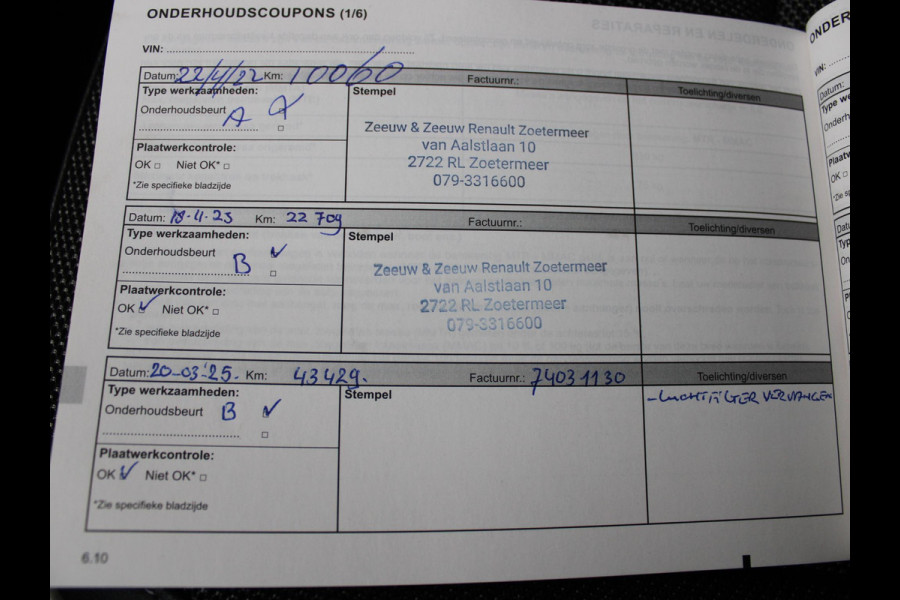 ONDERHOUDSCOUPONS (1/6)
VIN:
Datum: 22/4/22 Km: 10060 Factuurnr.: Toelichting/diversen
Type werkzaamheden: Stempel
Onderhoudsbeurt A
Zeeuw & Zeeuw Renault Zoetermeer
van Aalstlaan 10
2722 RL Zoetermeer
079-3316600
Plaatwerkcontrole:
OK □ Niet OK* □
*Zie specifieke bladzijde
Datum: 18-4-23 Km: 22 709 Factuurnr.: Toelichting/diversen
Type werkzaamheden: Stempel
Onderhoudsbeurt B ✓
Zeeuw & Zeeuw Renault Zoetermeer
van Aalstlaan 10
2722 RL Zoetermeer
079-3316600
Plaatwerkcontrole:
OK ✓ Niet OK* □
*Zie specifieke bladzijde
Datum: 20-03-'25. Km: 43429. Factuurnr.: 74031130 Toelichting/diversen
Type werkzaamheden: Stempel
- LUCHTFILTER VERVANGEN
Onderhoudsbeurt B ✓
Plaatwerkcontrole:
OK ✓ Niet OK* □
*Zie specifieke bladzijde
6.10
ONDER
VIN:
Datum:
Type we
Onderh
Plaatw
OK □